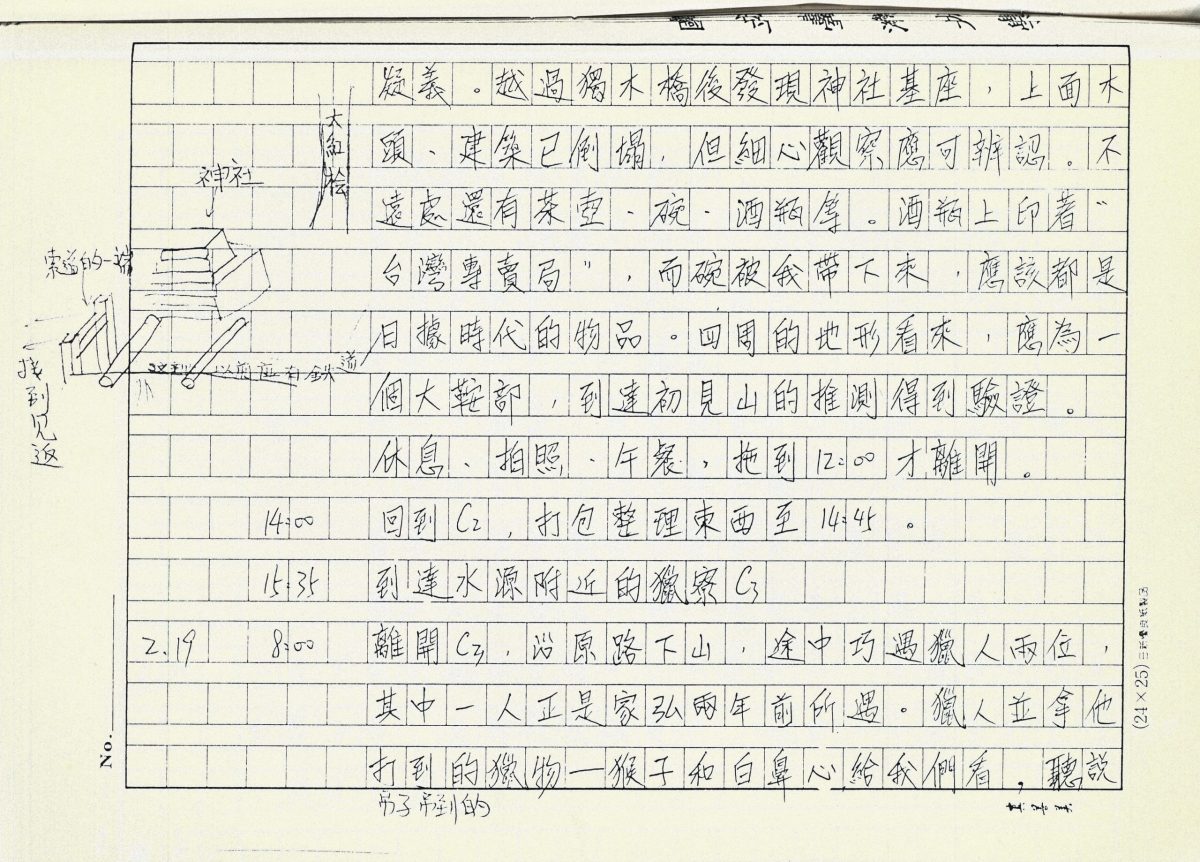 疑義。越過獨木橋後發現神社基座，上面木
頭、建築已倒塌，但細心觀察應可辨認。不
遠處還有茶壺、碗、酒瓶等。酒瓶上印著"
台灣專賣局"，而碗被我帶下來，應該都是
日據時代的物品。四周的地形看來，應為一
個大鞍部，到達初見山的推測得到驗證。
休息、拍照、午餐，拖到12:00才離開。
14:00 回到C2，打包整理東西至14:45。
15:35 到達水源附近的獵寮C3
2.19 8:00 離開C3，沿原路下山，途中巧遇獵人兩位，
其中一人正是家弘兩年前所遇。獵人並拿他
打到的獵物—猴子和白鼻心給我們看，聽說
吊子吊到的
大紅桧
神社
索道的一端
以前應有鉄道
找到見返
No.
(24×25)